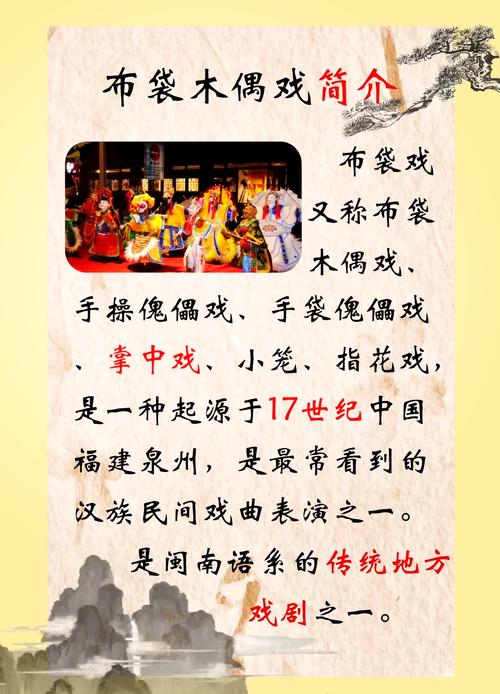 布袋木偶戏简介
布袋戏
又称布袋
木偶戏、
手操傀儡戏、手袋傀儡戏
、掌中戏、小笼、指花戏，
是一种起源于17世纪中国
福建泉州，是最常看到的
汉族民间戏曲表演之一。
是闽南语系的传统地方
戏剧之一。